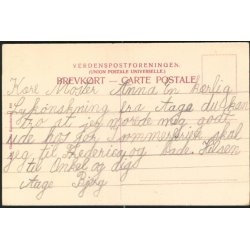 VERDENSPOSTFORENINGEN.
(UNION POSTALE UNIVERSELLE.)
BREVKORT — CARTE POSTALE
Kære Moster Anna En hærlig
Lykønskning fra Aage du kan
tro at jeg morede mig godt
ude hos gør sommerferie skal
jeg til Fredericia og bade Hilsen
til Onkel og dig
Aage Bjerg